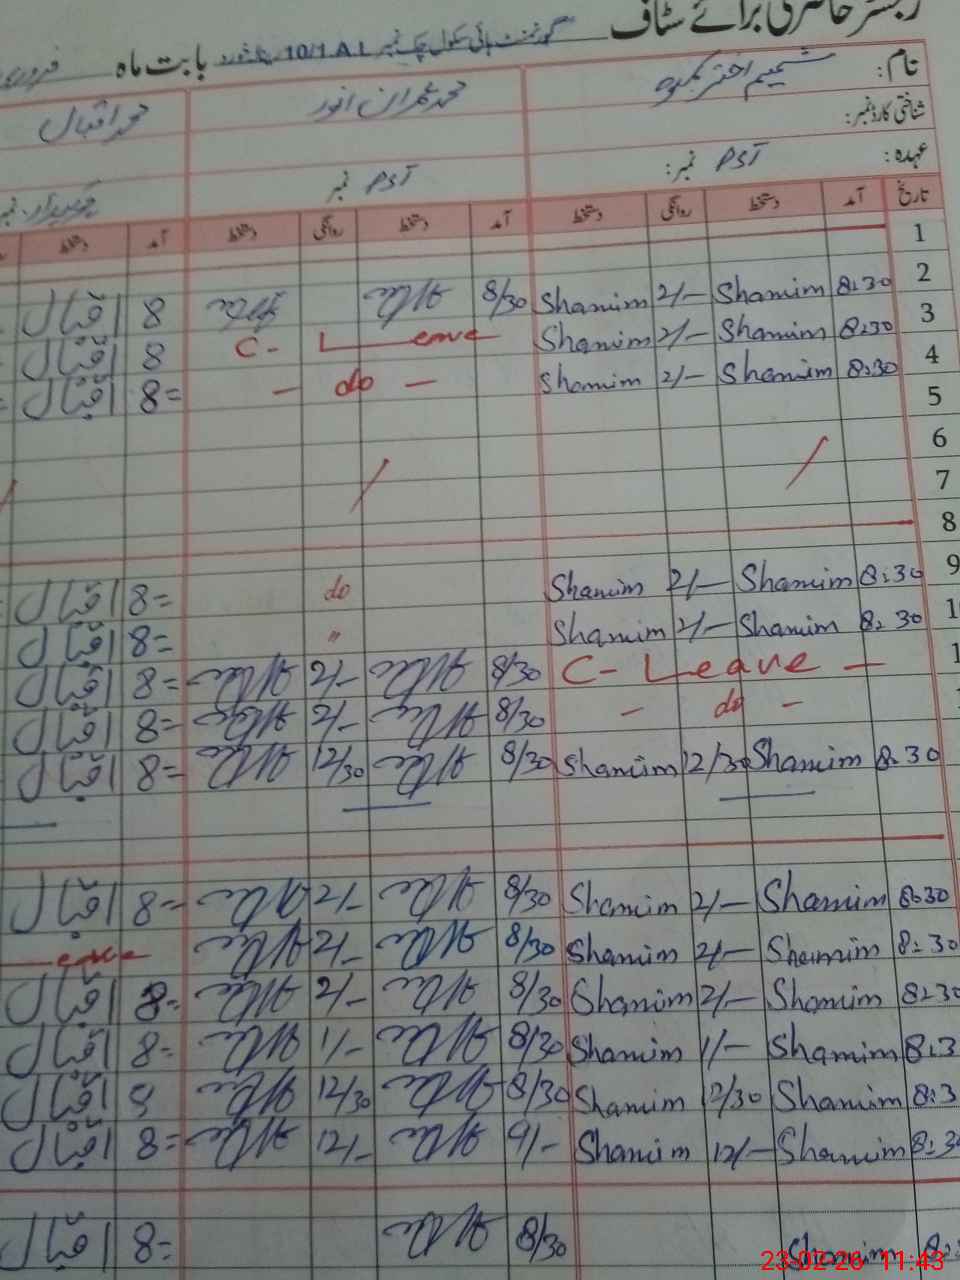 رجسٹر حاضری برائے سٹاف گورنمنٹ ہائی سکول چک نمبر 10/1.A.L بابت ماہ فروری
نام: شمیم اختر محمد عمران انور محمد اقبال
شناختی کارڈ نمبر:
عہدہ: PST نمبر: PST نمبر چوکیدار نمبر
تاریخ آمد دستخط روانگی دستخط آمد دستخط روانگی دستخط آمد دستخط
1
2 8:30 Shamim 2/- Shamim 8/30 8 اقبال
3 8:30 Shamim 2/- Shamim C- Leave 8 اقبال
4 8:30 Shamim 2/- Shamim - do - 8= اقبال
5
6
7
8
9 8:30 Shamim 2/- Shamim do 8= اقبال
1 8:30 Shamim 2/- Shamim " 8= اقبال
1 C- Leave - 8/30 2/- 8= اقبال
- do - 8/30 2/- 8= اقبال
8:30 Shamim 12/30 Shamim 8/30 12/30 8= اقبال
8:30 Shamim 2/- Shamim 8/30 2/- 8= اقبال
8:30 Shamim 2/- Shamim 8/30 2/- eave
8:30 Shamim 2/- Shamim 8/30 2/- 8= اقبال
8:3 Shamim 1/- Shamim 8/30 1/- 8= اقبال
8:3 Shamim 12/30 Shamim 8/30 12/30 8 اقبال
8:30 Shamim 12/- Shamim 9/- 12/- 8= اقبال
8: Shamim 8/30 8= اقبال
23-02-26 11:43